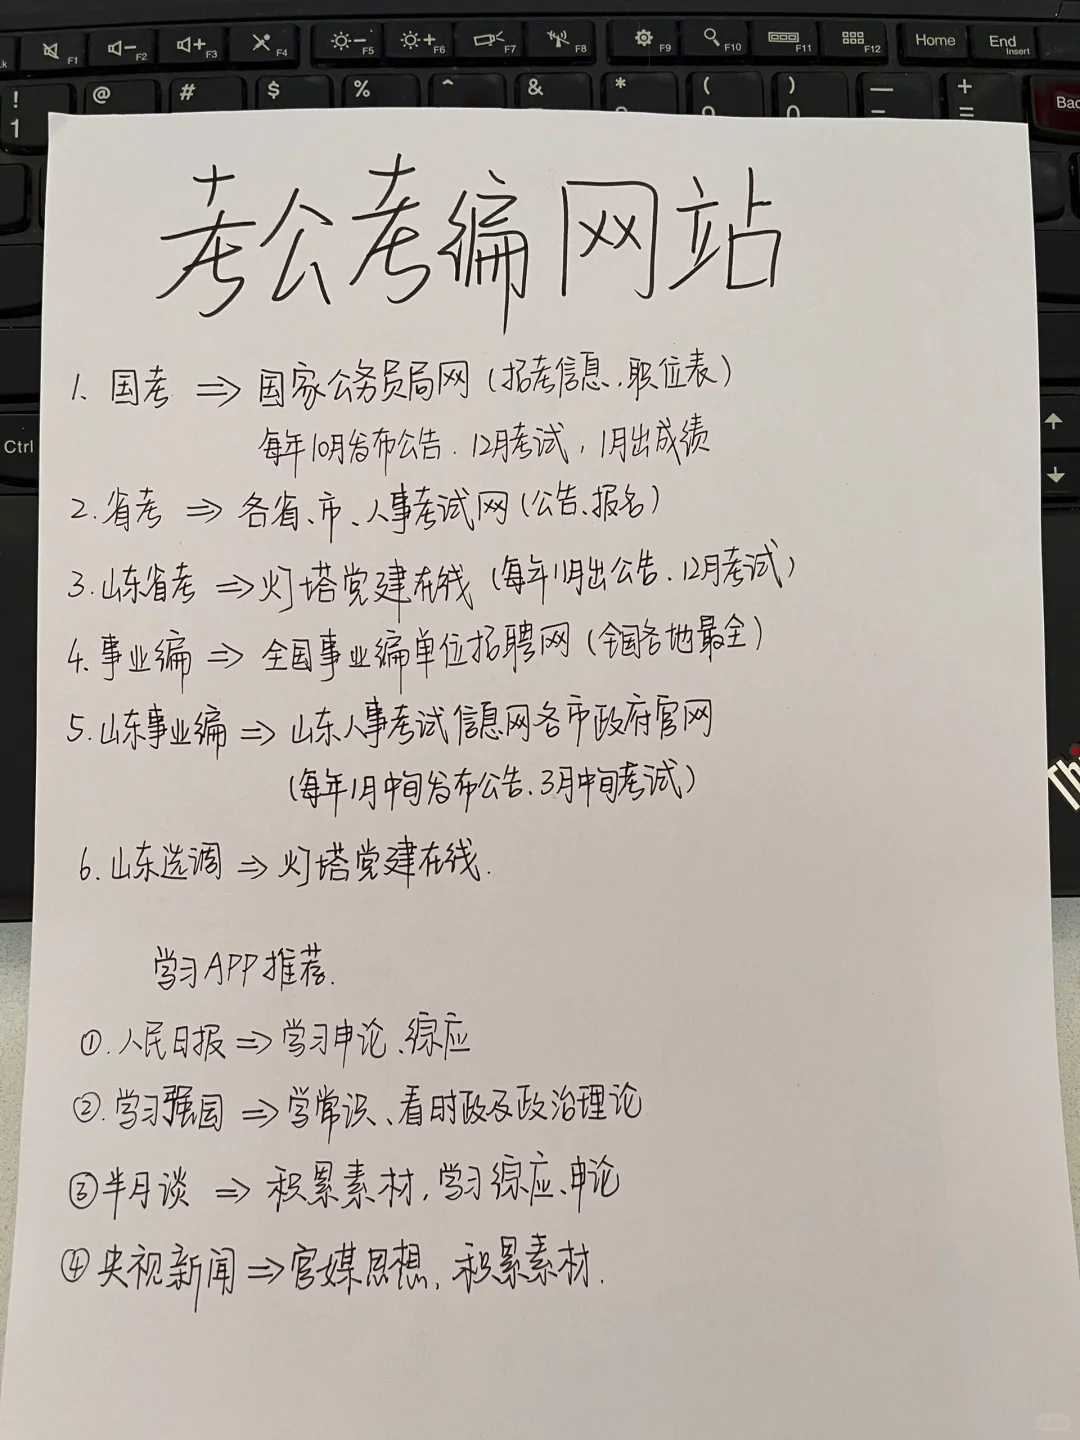 F1 F2 F3 F4 F5 F6 F7 F8 F9 F10 F11 F12 Home End Insert
! @ # $ % ^ & * ( ) — +
1 Bac
考公考编网站
1、国考 ⇒ 国家公务员局网(招考信息、职位表)
每年10月发布公告.12月考试,1月出成绩
2.省考 ⇒ 各省、市、人事考试网(公告、报名)
3.山东省考 ⇒ 灯塔党建在线(每年11月出公告.12月考试)
Ctrl
4.事业编 ⇒ 全国事业编单位招聘网(全国各地最全)
5.山东事业编 ⇒ 山东人事考试信息网各市政府官网
(每年1月中旬发布公告、3月中旬考试)
Thi
6.山东选调 ⇒ 灯塔党建在线.
学习APP推荐.
①.人民日报 ⇒ 学习申论、综应
②.学习强国 ⇒ 学常识、看时政及政治理论
③半月谈 ⇒ 积累素材,学习综应、申论
④央视新闻 ⇒ 官媒思想,积累素材.